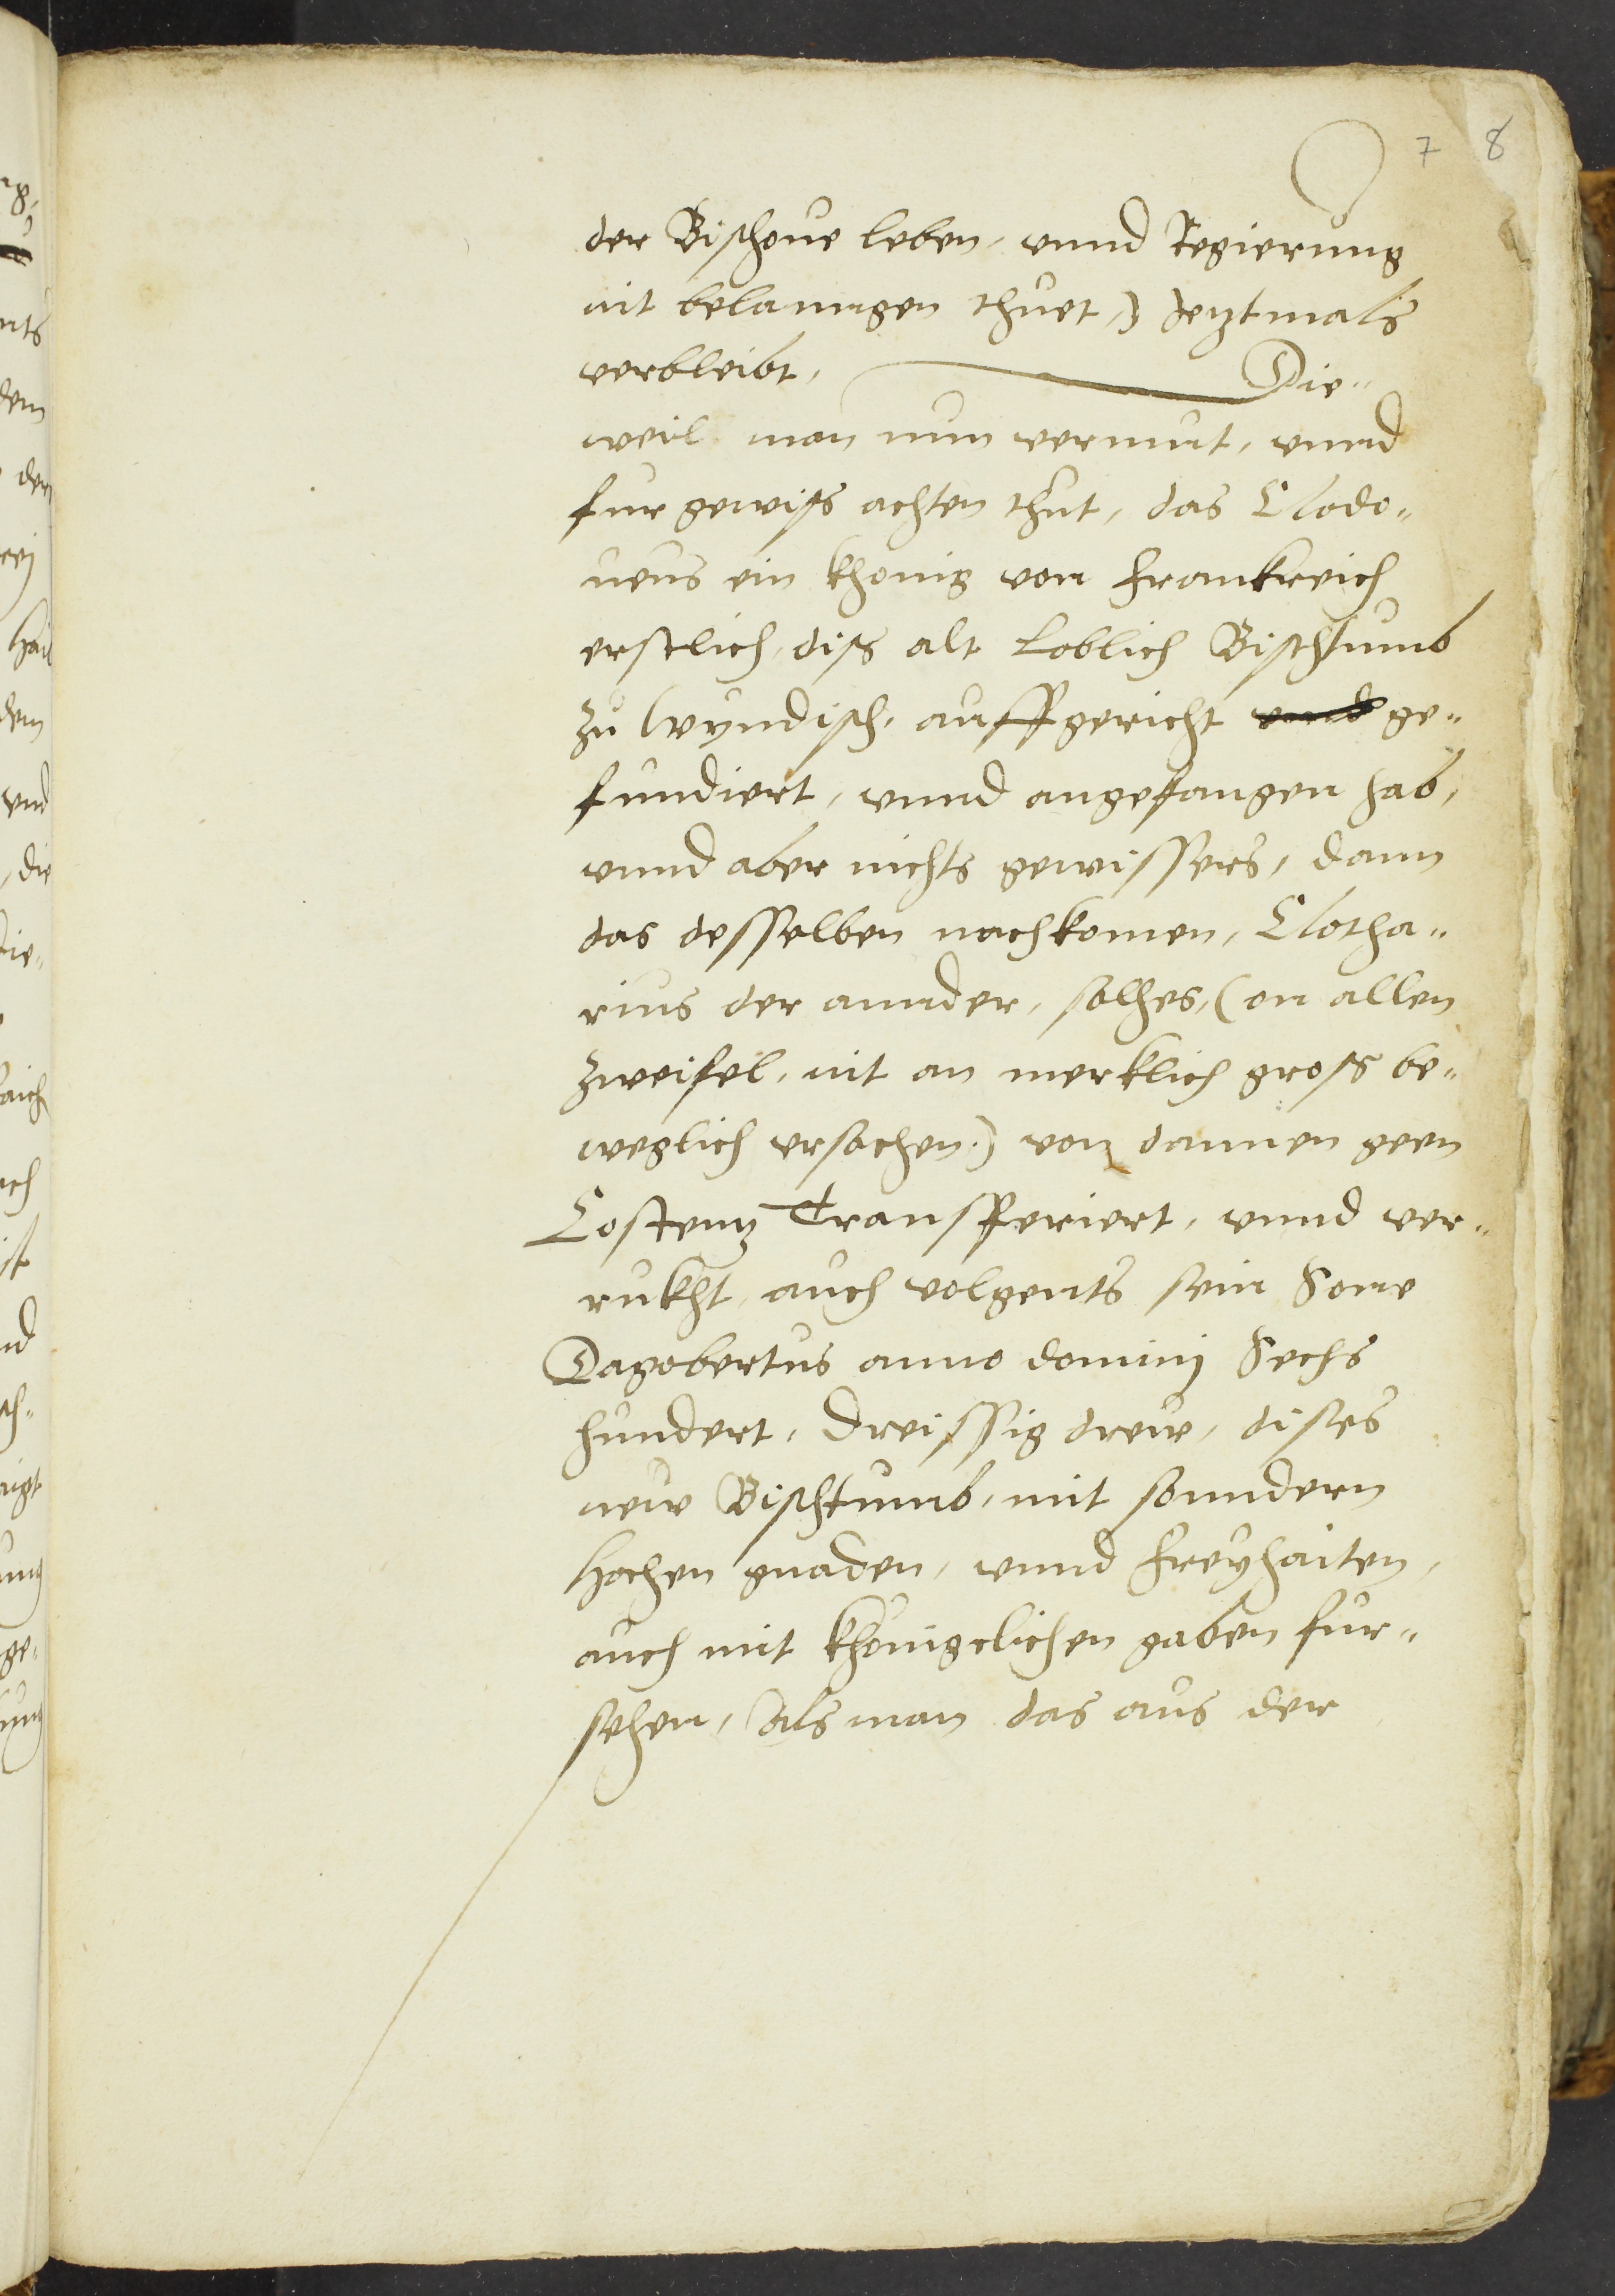 7 8
der Bischoue leben, vnnd Regierung
nit belanngen thuet,) Jetztmals
verbleibt, Die„
weil man nun vermut, vnnd
fur gewiss achten thut, das Clodo„
ueus ein khonig von Frankreich
erstlich, diss alt Loblich Bischtumb
zu Wyndisch, auffgericht vnd ge„
fundiert, vnnd angefangen hab,
vnnd aber nichts gewissers, dann
das desselben nachkomen, Clotha„
rius der annder, solhes, (on allen
zweifel, nit an merklich gross be„
weglich vrsachen.) von dannen geen
Costenz Transfferiert, vnnd ver„
rukht, auch volgents sein Sone
Dagobertus anno dominj Sechs
hundert, Dreissig drew, dises
new Bischtumb, mit sonndern
Hochen gnaden, vnnd Freyhaiten,
auch mit khonigclichen gaben fur„
sehen, Als man das aus der